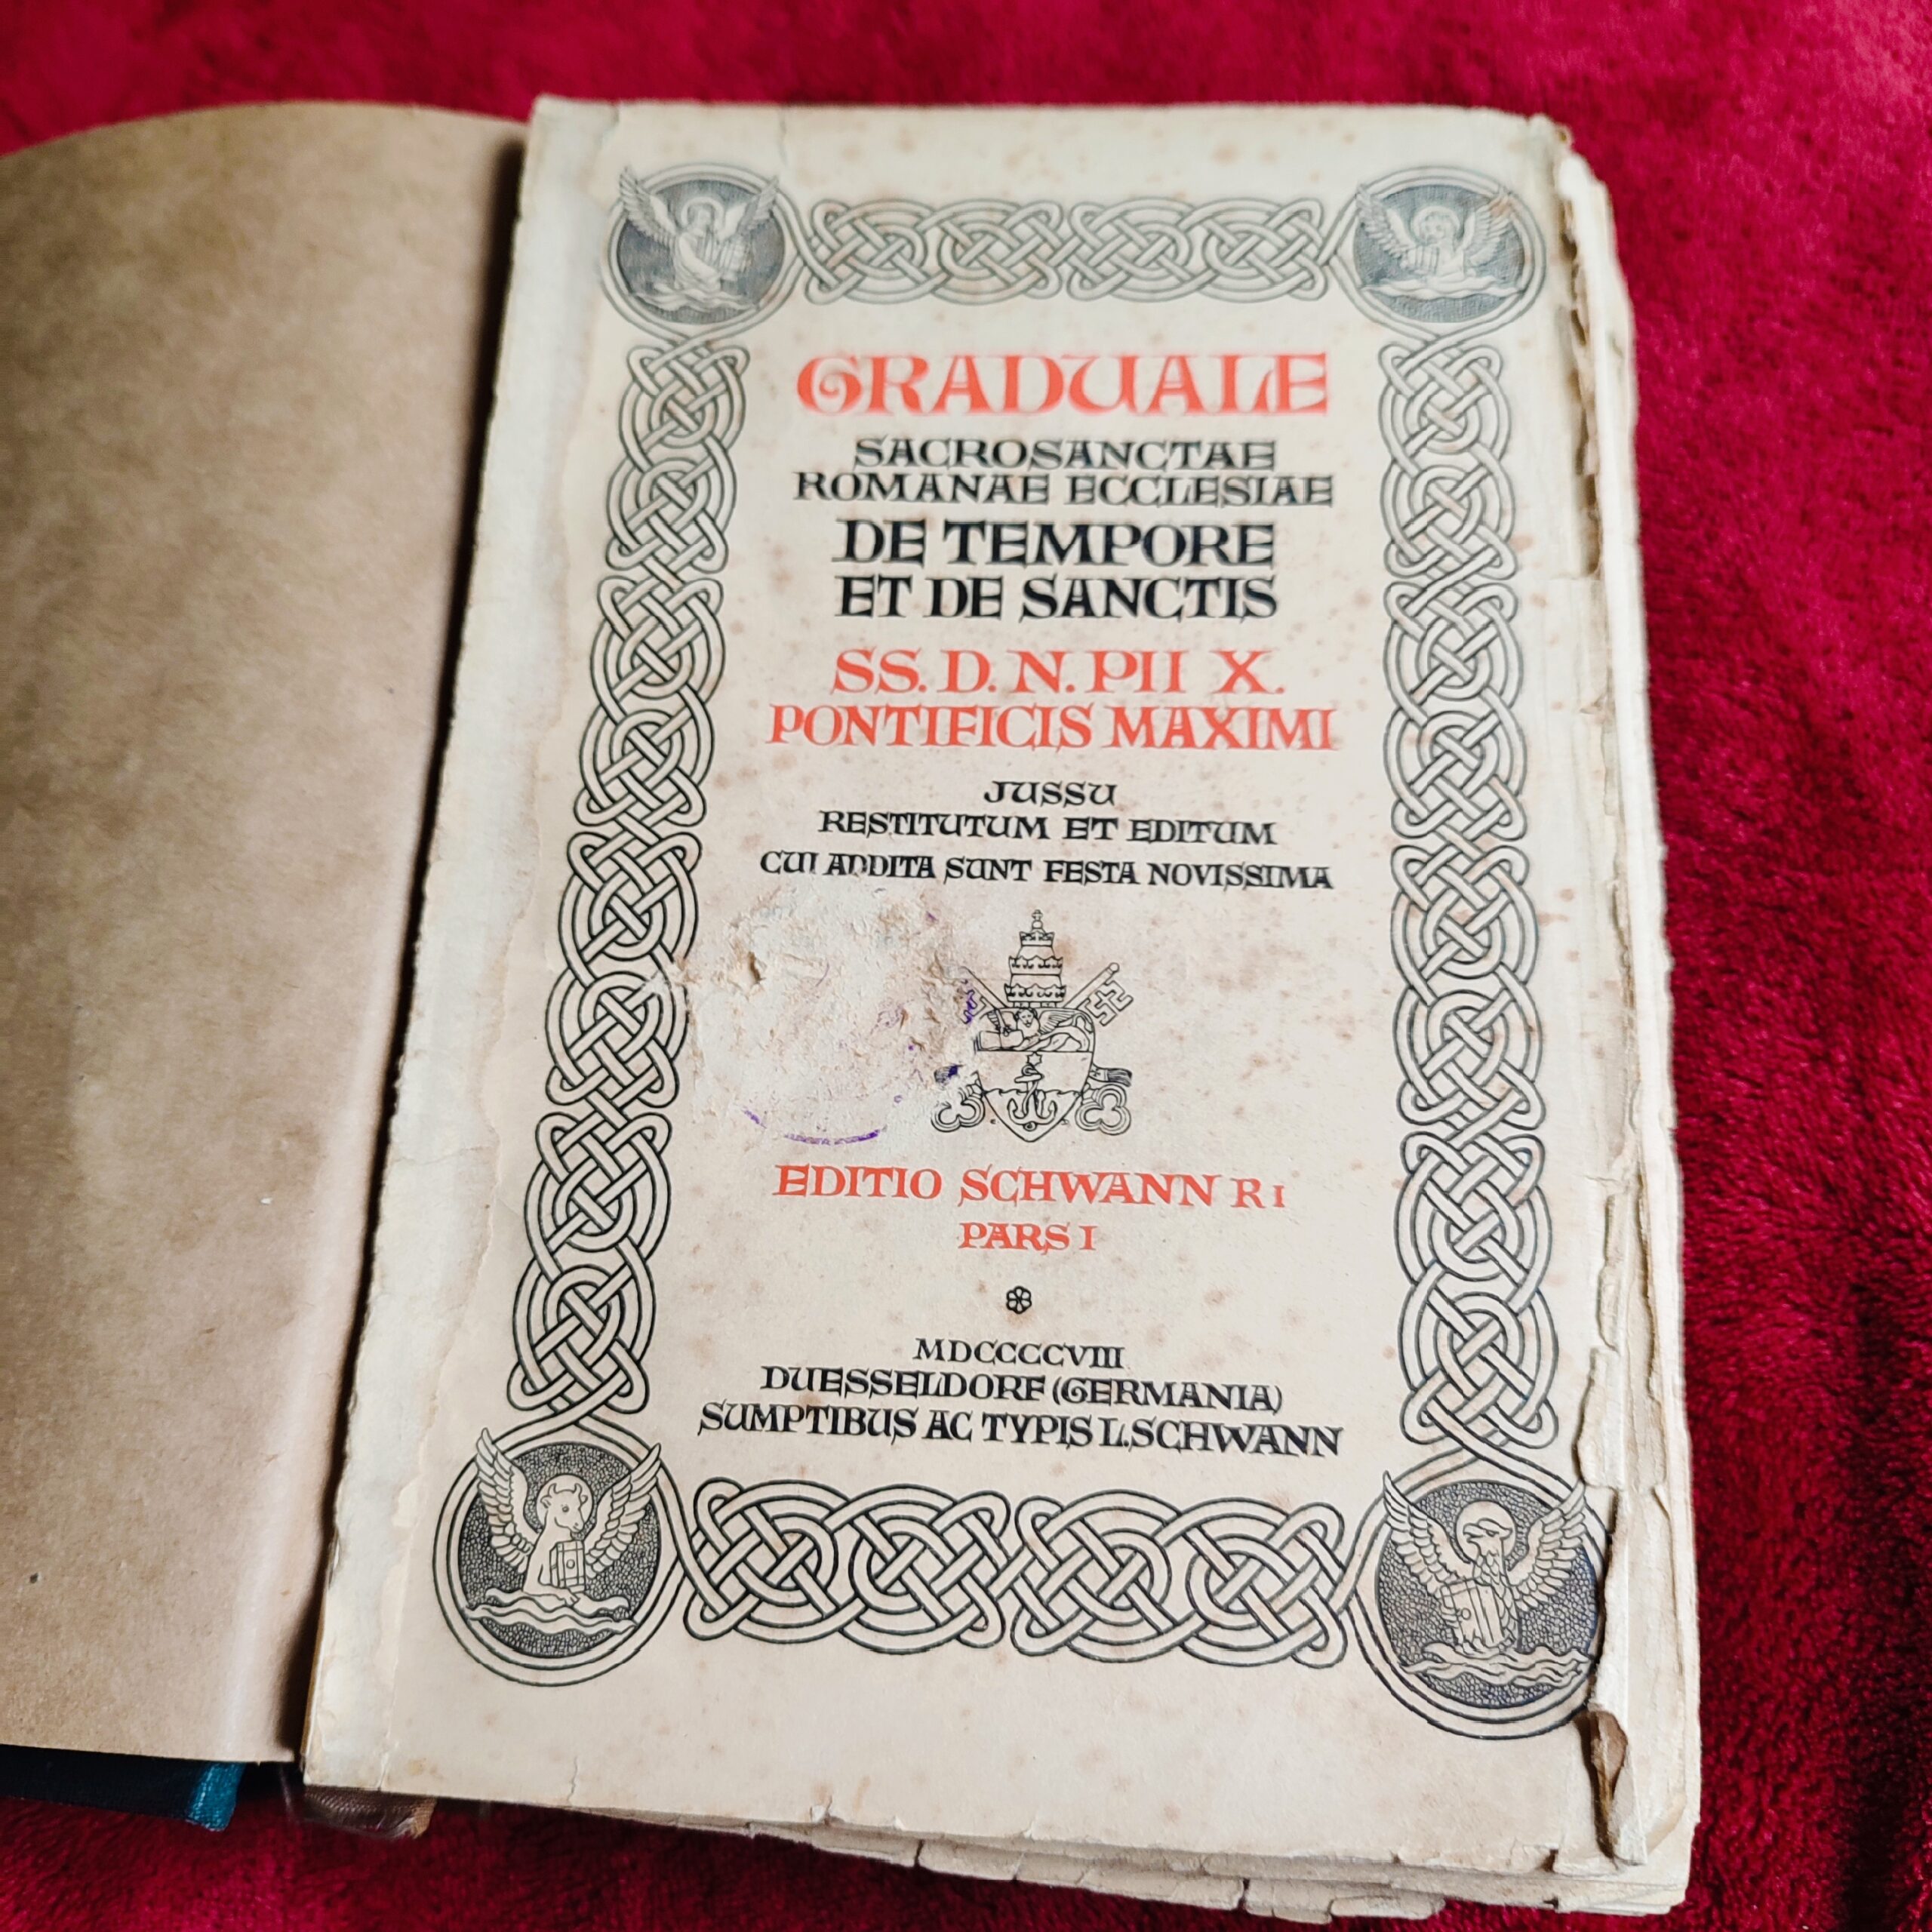 GRADUALE
SACROSANCTAE
ROMANAE ECCLESIAE
DE TEMPORE
ET DE SANCTIS
SS. D. N. PII X.
PONTIFICIS MAXIMI
JUSSU
RESTITUTUM ET EDITUM
CUI ADDITA SUNT FESTA NOVISSIMA
EDITIO SCHWANN R I
PARS I
MDCCCCVIII
DUESSELDORF (GERMANIA)
SUMPTIBUS AC TYPIS L. SCHWANN